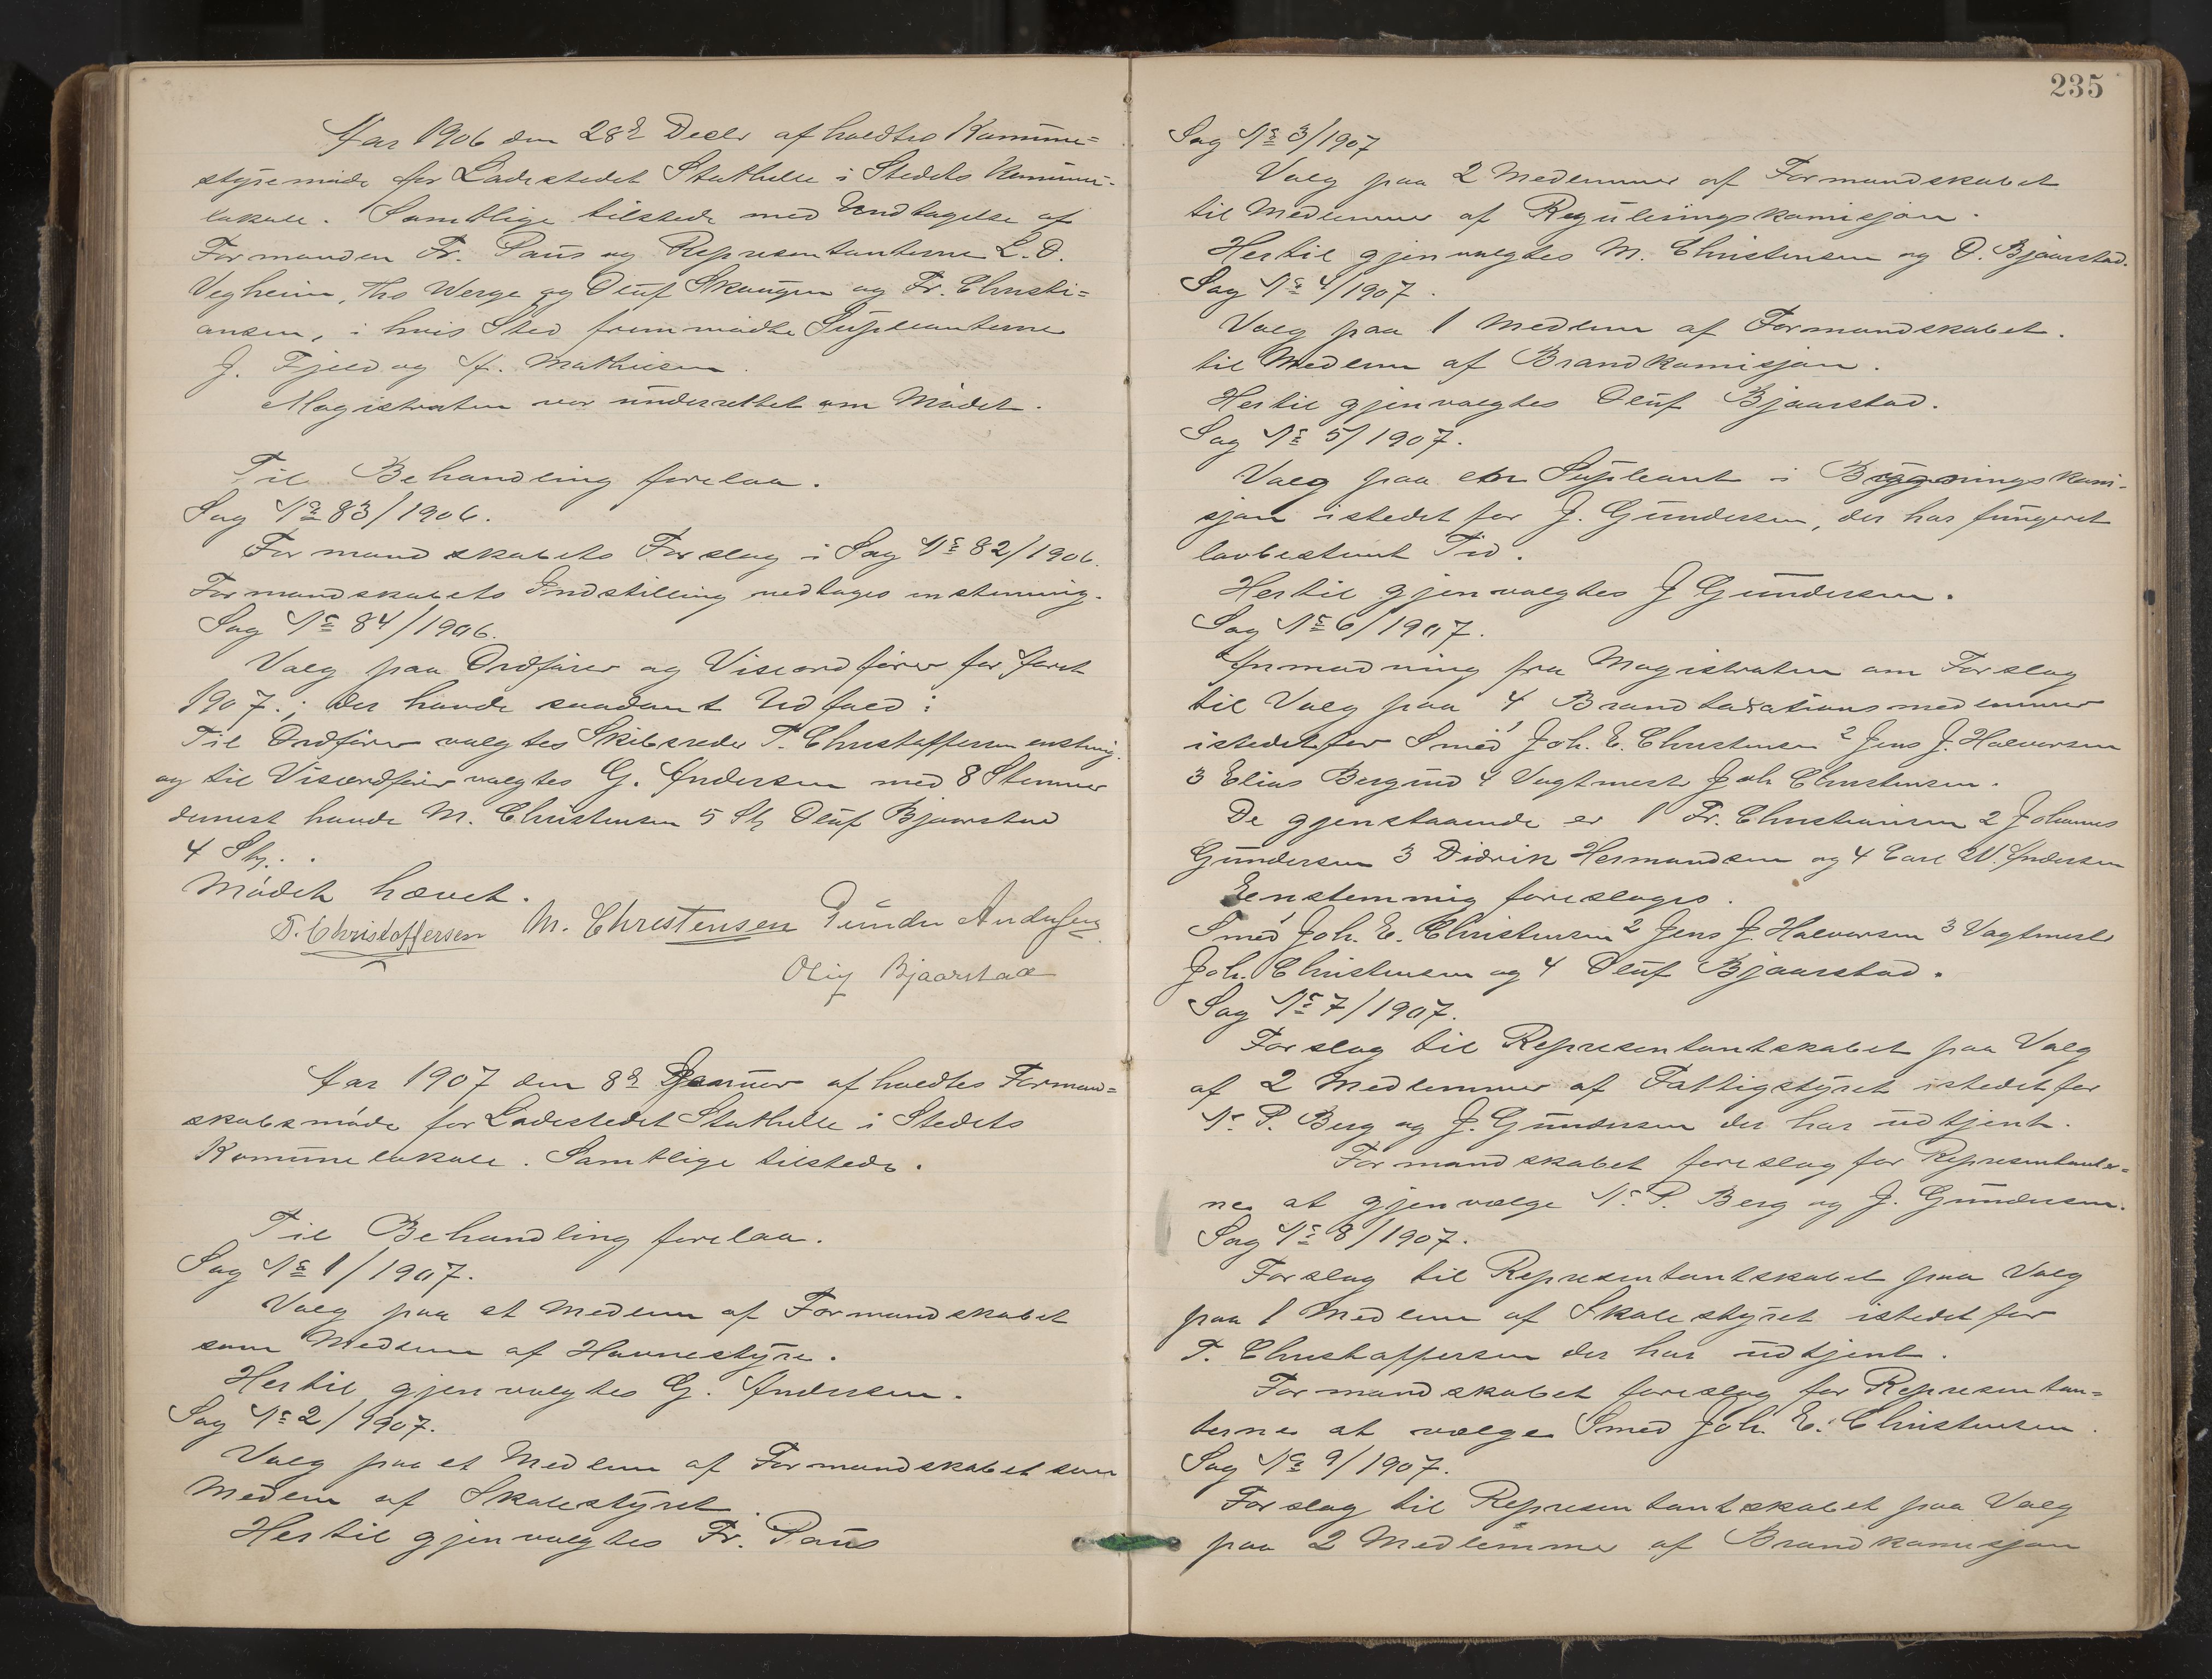 Aar 1906 den 28d Decbr afholdtes Kommune=
styremöde for Ladestedet Stathelle i Stedets Kommune-
lokale. Samtlige tilstede med Undtagelse af
Formanden Fr. Paus og Representanterne L. O.
Vegheim, Ths Werge og Oluf Skougen og Fr. Christi=
ansen, i hvis Sted fremmödte Supleanterne
J. Fjeld og A. Mathiesen.
Magistraten var underrettet om Mödet.
Til Behandling forelaa.
Sag No 83/1906.
Formandskabets Forslag i Sag No 82/1906.
Formandskabets Indstilling vedtages enstemmig.
Sag No 84/1906.
Valg paa Ordförer og Viseordförer for Aaret
1907.; der havde saadant Udfald:
Til Ordförer valgtes Skibsreder T. Christoffersen enstemig.
og til Viseordförer valgtes G. Andersen med 8 Stemmer
dernest havde M. Christensen 5 St. Oluf Bjaarstad
4 St.
Mödet hævet.
T. Christoffersen M. Christensen Gunder Andersen
Oluf Bjaarstad
Aar 1907 den 8d Januar afholdtes Formand=
skabsmöde for Ladestedet Stathelle i Stedets
Komunelokale. Samtlige tilstede.
Til Behandling forelaa.
Sag No 1/1907.
Valg paa et Medlem af Formandskabet
som Medlem af Havnestyre.
Hertil gjenvalgtes G. Andersen.
Sag No 2/1907.
Valg paa et Medlem af Formandskabet som
Medlem af Skolestyret.
Hertil gjenvalgtes Fr. Paus
235
Sag No 3/1907
Valg paa 2 Medlemmer af Formandskabet
til Medlemmer af Reguleringskomisjon.
Hertil gjenvalgtes M. Christensen og O. Bjaarstad.
Sag No 4/1907.
Valg paa 1 Medlem af Formandskabet.
til Medlem af Brandkomisjon.
Hertil gjenvalgtes Oluf Bjaarstad.
Sag No 5/1907.
Valg paa en Supleant i Bygningskomi-
sjon istedet for J. Gundersen, der har fungeret
lovbestemt Tid.
Hertil gjenvalgtes J Gundersen.
Sag No 6/1907.
Anmodning fra Magistraten om Forslag
til Valg paa 4 Brandtaxationsmedlemmer
istedetfor 1 Smed Joh. E. Christensen 2 Jens J. Halvorsen
3 Elias Bergund 4 Vagtmest. Joh Christensen.
De gjenstaaende er 1 Fr. Christiansen 2 Johannes
Gundersen 3 Didrik Hermandsen og 4 Carl W. Andersen
Eenstemmig foreslages.
1 Smed Joh. E. Christensen 2 Jens J. Halvorsen 3 Vagtmest.
Joh. Christensen og 4 Oluf Bjaarstad.
Sag No 7/1907.
Forslag til Representantskabet paa Valg
af 2 Medlemmer af Fattigstyret istedetfor
N. P. Berg og J. Gundersen der har udtjent.
Formandskabet foreslog for Representanter=
ne at gjenvælge N. P. Berg og J. Gundersen.
Sag No 8/1907.
Forslag til Representantskabet paa Valg
paa 1 Medlem af Skolestyret istedet for
T. Christoffersen der har udtjent.
Formandskabet foreslog for Representan=
terne at vælge Smed Joh. E. Christensen.
Sag No 9/1907.
Forslag til Representantskabet paa Valg
paa 2 Medlemmer af Brandkomisjon